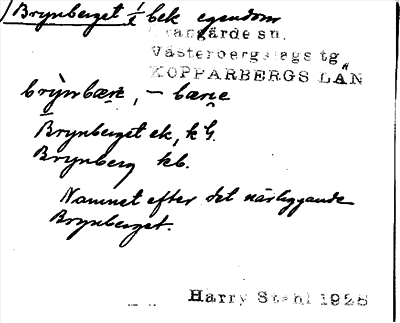 Brynberget 1/1 bek egendom
Grangärde sn.
Västerbergslags tg
KOPPARBERGS LÄN
bry̌nbære, – bære
Brynberget ek, kG.
Brynberg kb.
Namnet efter det närliggande
Brynberget.
Harry Ståhl 1928